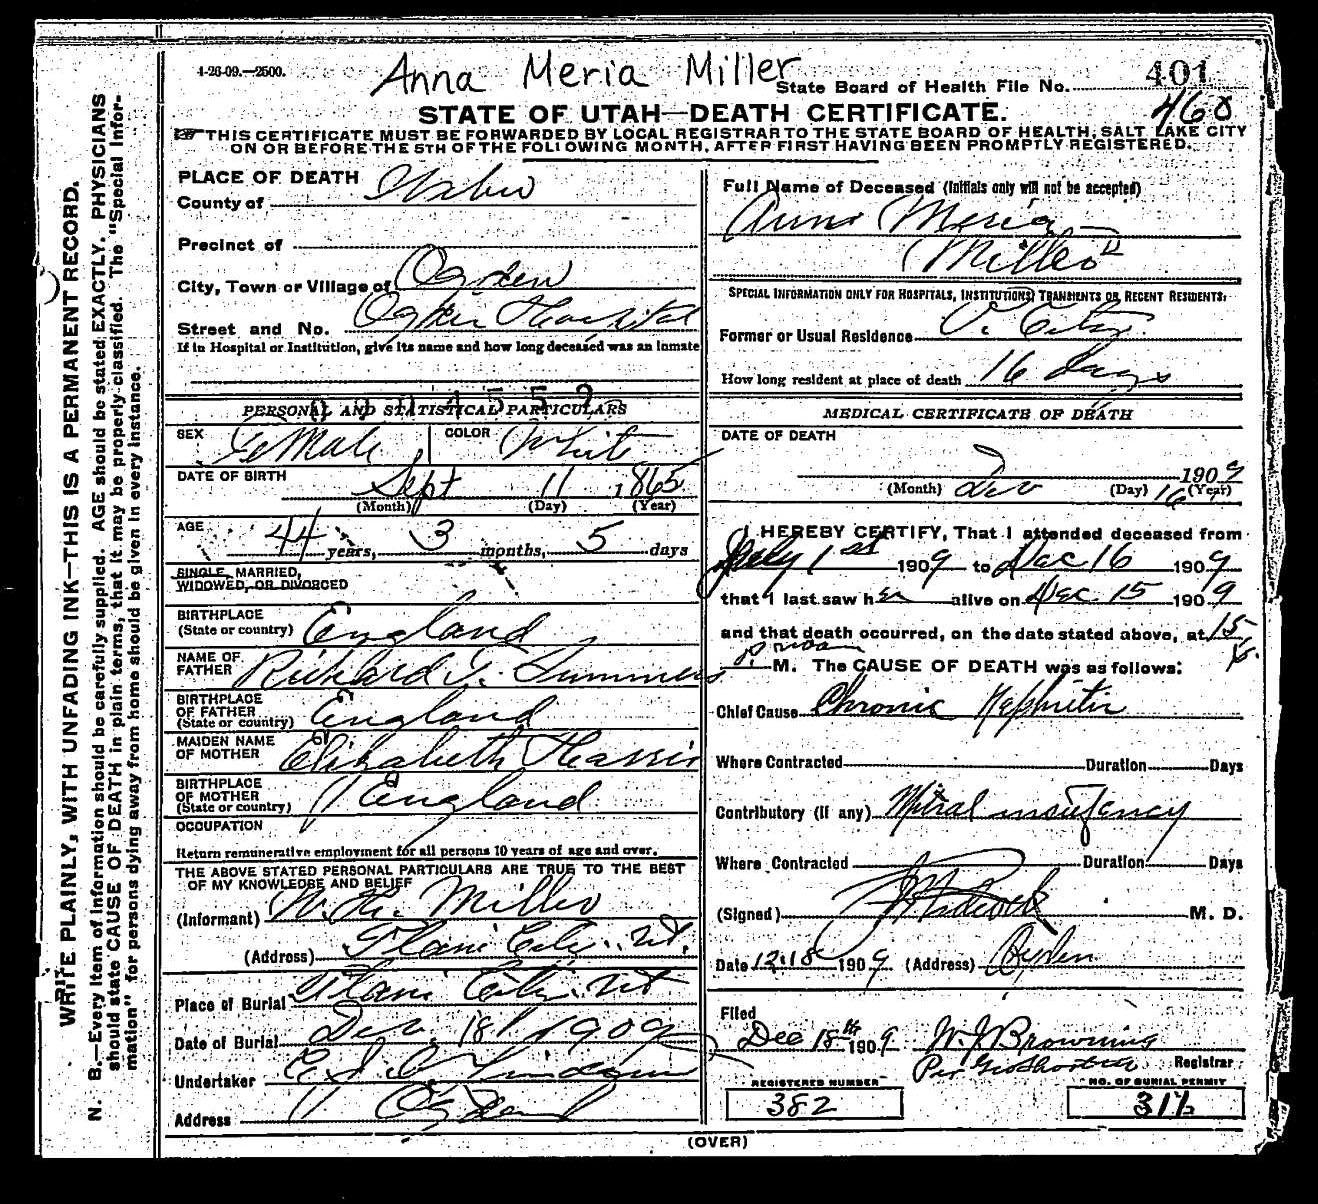 WRITE PLAINLY, WITH UNFADING INK—THIS IS A PERMANENT RECORD.
N. B.—Every item of information should be carefully supplied. AGE should be stated EXACTLY. PHYSICIANS
should state CAUSE OF DEATH in plain terms, that it may be properly classified. The "Special Infor-
mation" for persons dying away from home should be given in every instance.
4-26-09.—2500.
Anna Meria Miller
State Board of Health File No. 401
460
STATE OF UTAH—DEATH CERTIFICATE.
THIS CERTIFICATE MUST BE FORWARDED BY LOCAL REGISTRAR TO THE STATE BOARD OF HEALTH, SALT LAKE CITY
ON OR BEFORE THE 5TH OF THE FOLLOWING MONTH, AFTER FIRST HAVING BEEN PROMPTLY REGISTERED.
PLACE OF DEATH
County of Weber
Precinct of
City, Town or Village of Ogden
Street and No. Ogden Hospital
If in Hospital or Institution, give its name and how long deceased was an inmate
PERSONAL AND STATISTICAL PARTICULARS
SEX Female COLOR White
DATE OF BIRTH Sept 11 1865
(Month) (Day) (Year)
AGE 44 years, 3 months, 5 days
SINGLE, MARRIED,
WIDOWED, OR DIVORCED
BIRTHPLACE
(State or country) England
NAME OF
FATHER Richard T. Summers
BIRTHPLACE
OF FATHER
(State or country) England
MAIDEN NAME
OF MOTHER Elizabeth Harris
BIRTHPLACE
OF MOTHER
(State or country) England
OCCUPATION
Return remunerative employment for all persons 10 years of age and over.
THE ABOVE STATED PERSONAL PARTICULARS ARE TRUE TO THE BEST
OF MY KNOWLEDGE AND BELIEF
(Informant) W. H. Miller
(Address) Plain City. Ut.
Place of Burial Plain City. Ut
Date of Burial Dec. 18 1909
Undertaker
Address Ogden
Full Name of Deceased (Initials only will not be accepted)
Anna Meria
Miller
SPECIAL INFORMATION ONLY FOR HOSPITALS, INSTITUTIONS, TRANSIENTS OR RECENT RESIDENTS.
Former or Usual Residence P. City
How long resident at place of death 16 days
MEDICAL CERTIFICATE OF DEATH
DATE OF DEATH
1909
(Month) Dec (Day) 16 (Year)
I HEREBY CERTIFY, That I attended deceased from
July 1st 1909 to Dec 16 1909
that I last saw her alive on Dec. 15 1909
and that death occurred, on the date stated above, at
M. The CAUSE OF DEATH was as follows:
Chief Cause Chronic Nephritis
Where Contracted Duration Days
Contributory (if any) Mitral insufency
Where Contracted Duration Days
(Signed) M. D.
Date 12.18 1909 (Address) Ogden
Filed
Dec 18th 1909 W. J. Browning
Registrar
REGISTERED NUMBER
382
NO. OF BURIAL PERMIT
316
(OVER)